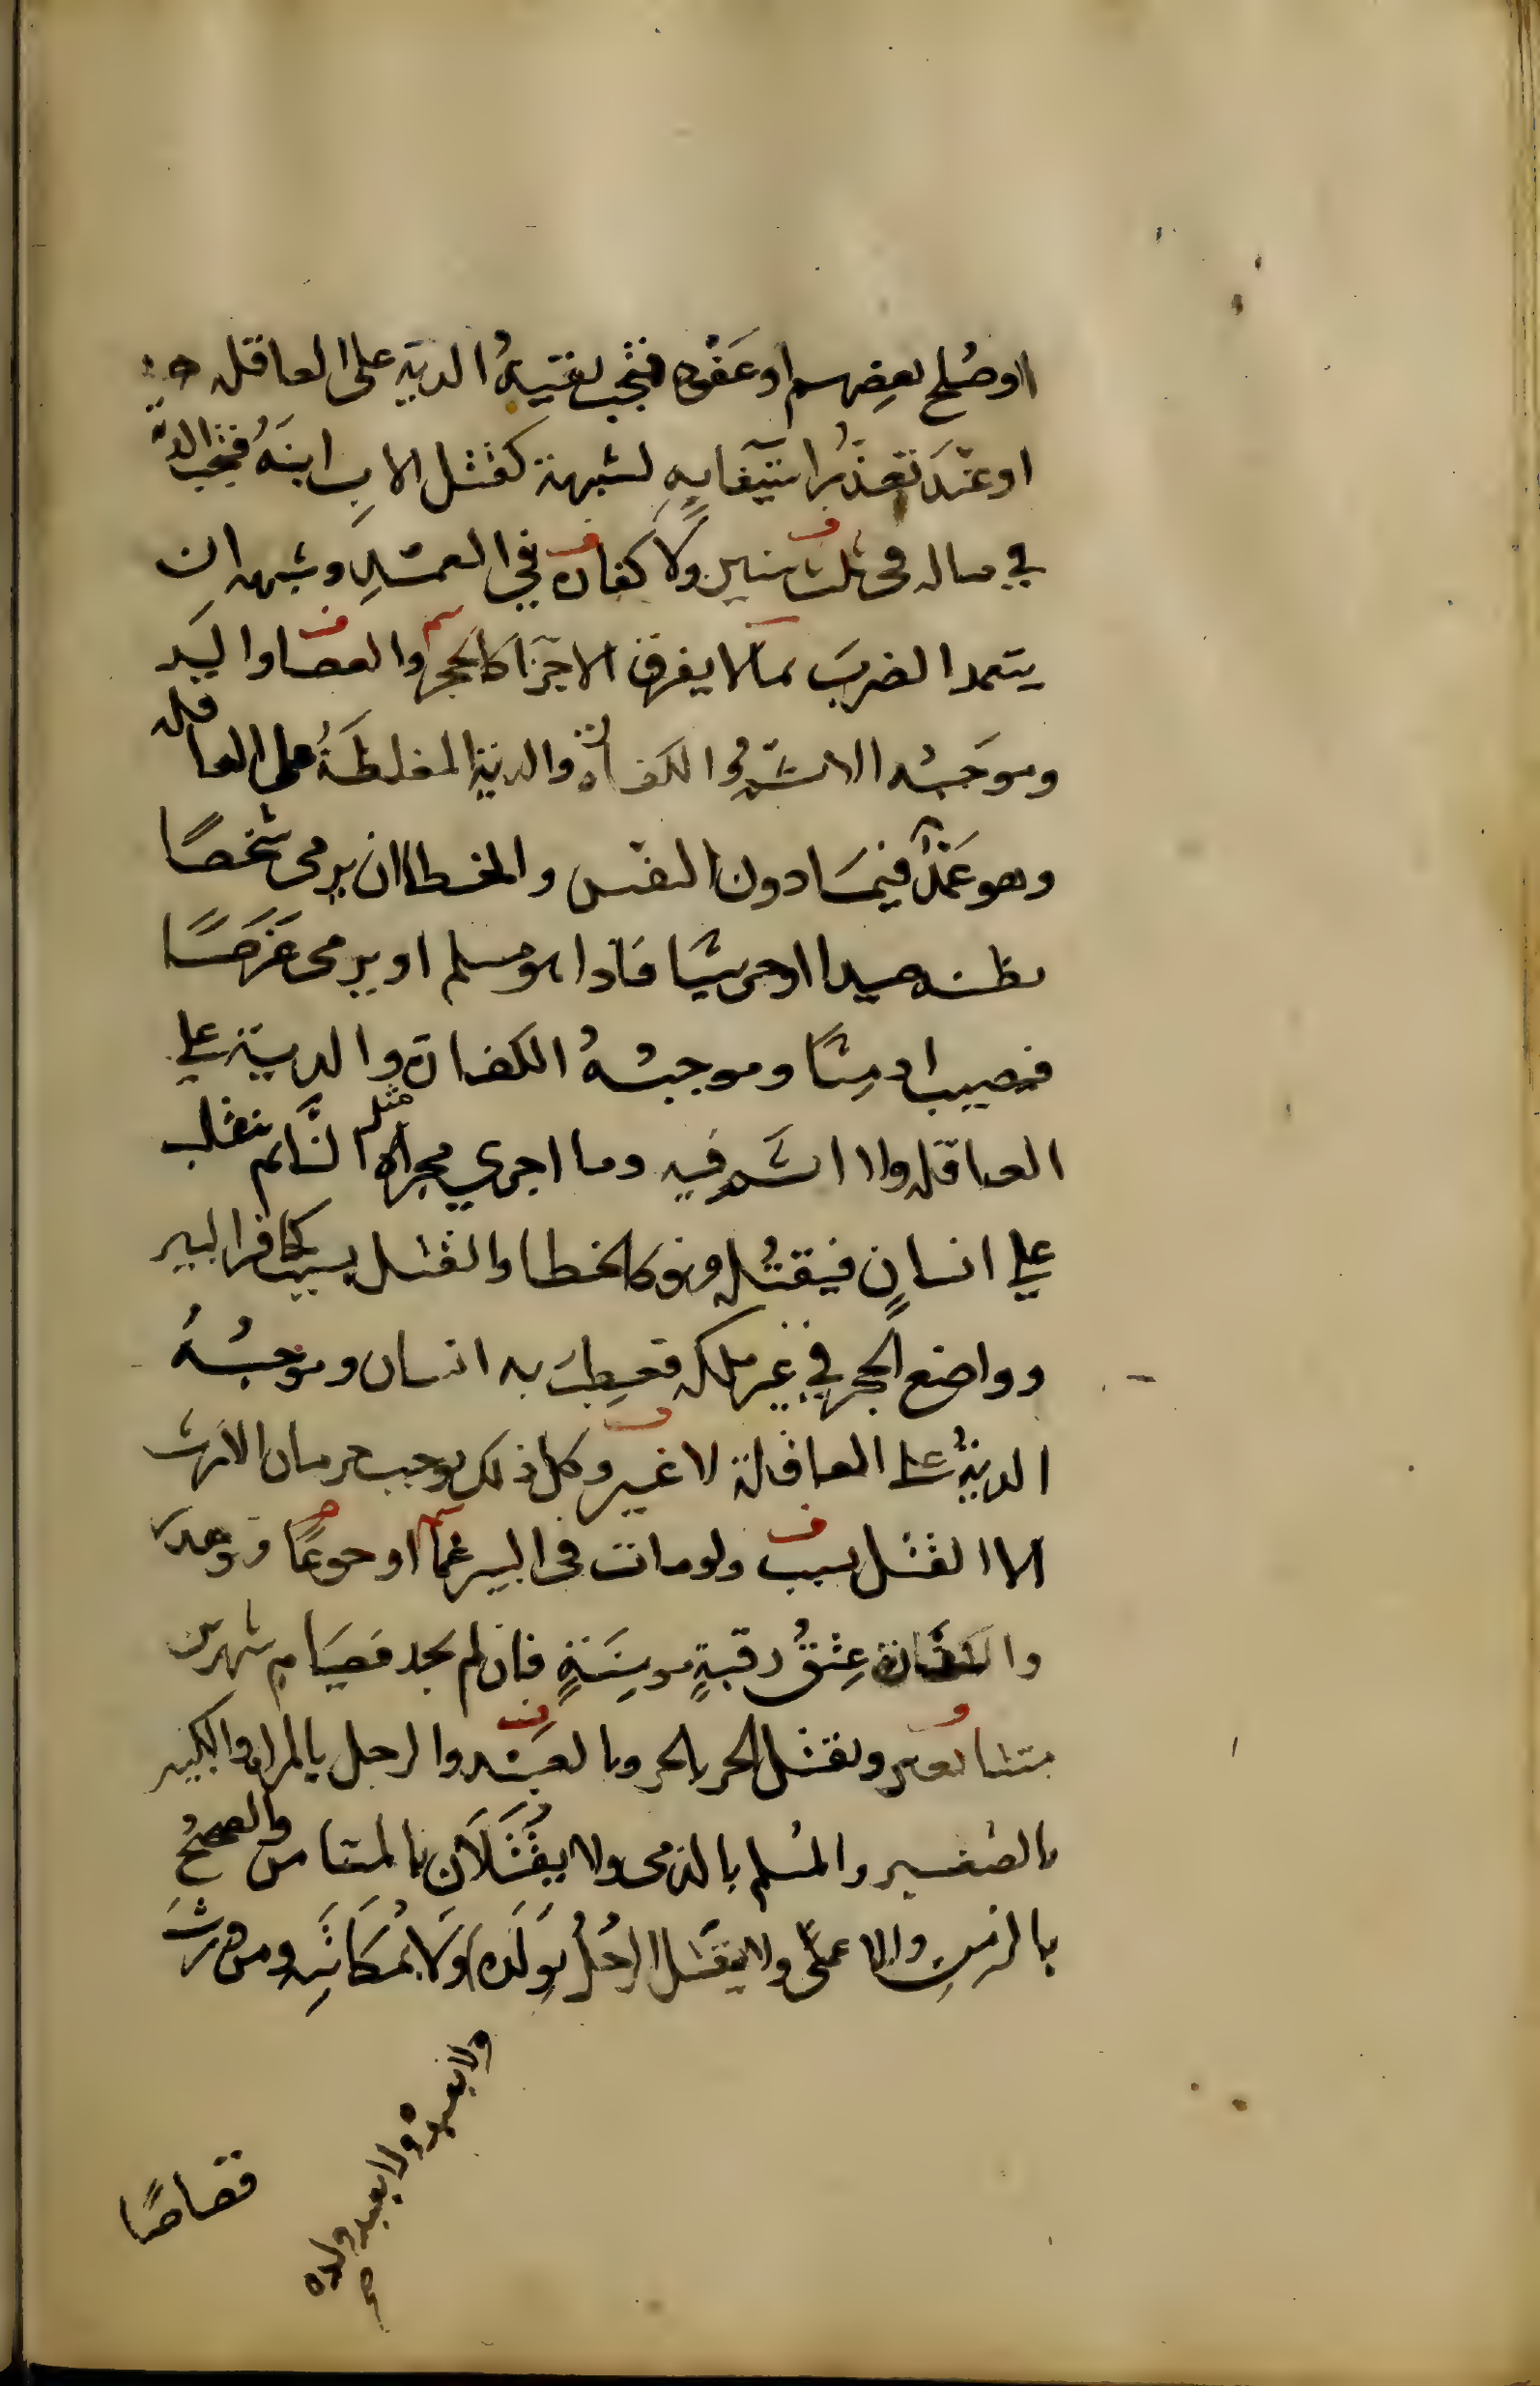 او صلح بعضهم او عفوه فتجب بقية الدية على العاقلة
او عند تعذر استيفايه لشبهة كقتل الاب ابنه فتجب الدية
في ماله في ثلث سنين ولا كفارة في العمد وشبهه ان
يتعمد الضرب بما لا يفرق الاجزا كالحجر والعصا واليد
وموجبه الاثم والكفارة والدية المغلظة على العاقله
وهو عمد فيما دون النفس والخطا ان يرمى شخصا
يظنه صيدا او حربيا فاذا هو مسلم او يرمى غرضا
فيصيب ادميا وموجبه الكفارة والدية علي
العاقله ولا اثم فيه وما اجري مجراه مثل النايم ينقلب
علي انسان فيقتله وهو كالخطا والقتل بسبب كحافر البير
وواضع الحجر في غير ملكه فيعطب به انسان وموجبه
الدية على العاقلة لا غير وكل ذلك يوجب حرمان الارث
الا القتل بسبب ولو مات في البير غما او جوعا فهدر
والكفارة عتق رقبة مومنة فان لم يجد فصيام شهرين
متتابعين ويقتل الحر بالحر وبالعبد والرجل بالمراة والكبير
بالصغير والمسلم بالذمى ولا يقتلان بالمستامن والصحيح
بالزمن والاعمى ولا يقتل الرجل بولده ولا بمكاتبه ومن ورث
ولا بعبده ولا بعبد ولده
صح
قصاصا